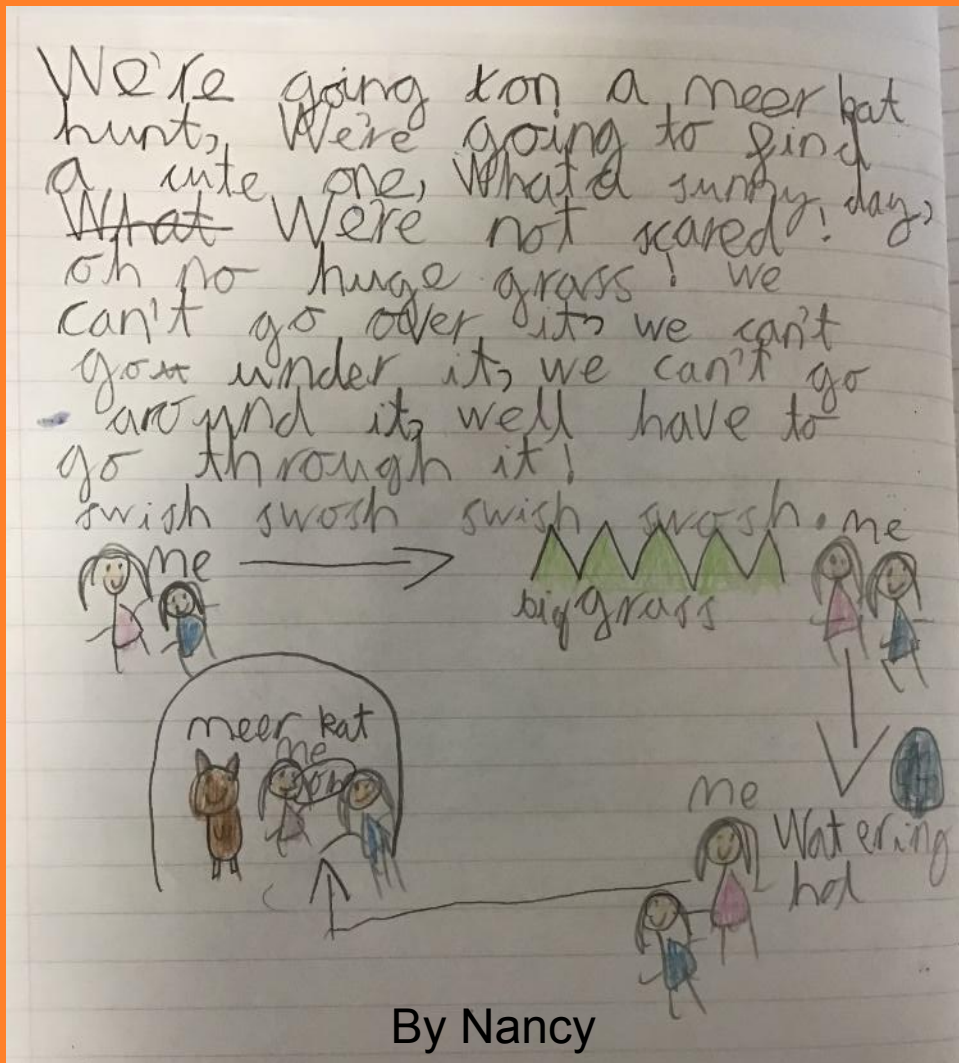 We're going on a meer kat
hunt, We're going to find
a cute one, What a sunny, day,
What We're not scared!
oh no huge grass! we
can't go over it, we can't
go under it, we can't go
around it, well have to
go through it!
swish swosh swish swosh.
me
me
big grass
meer kat
me
oh
me
Watering
hol
By Nancy